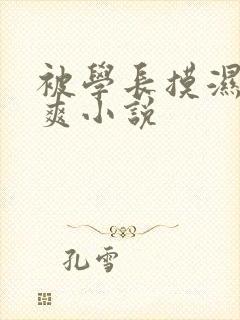 被學長摸濕
爽小説
孔雪